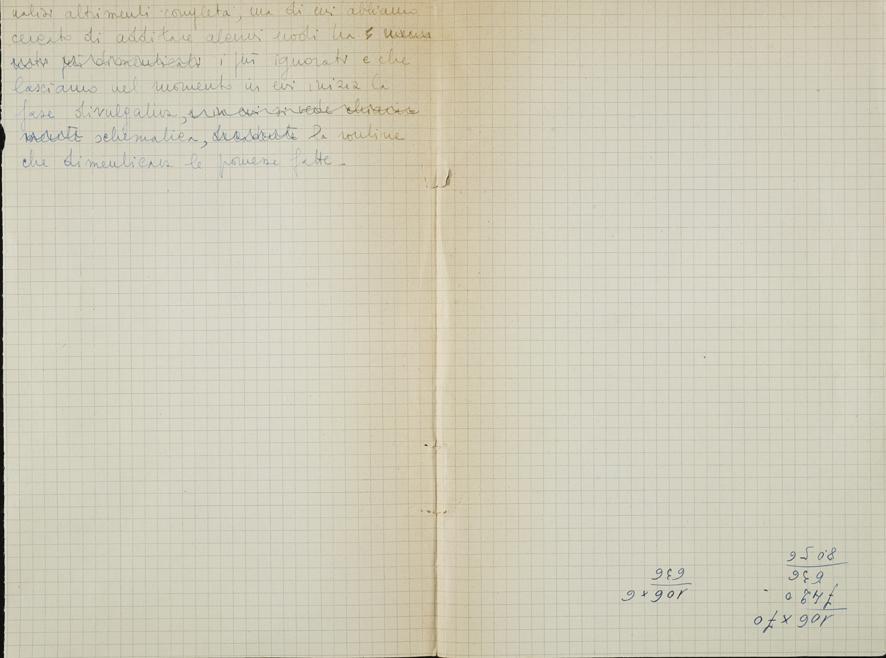 nalisi altrimenti completa, ma di cui abbiamo
cercato di additare alcuni nodi tra
i più ignorati e che
lasciamo nel momento in cui inizia la
fase divulgativa,
schematica, la routine
che dimentica le promesse fatte.
106 x 70
7420
636
8056
106 x 6
636